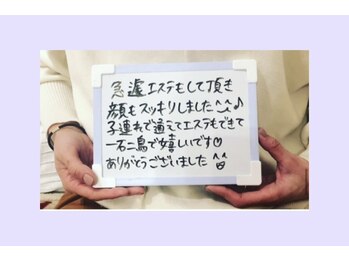 急遽エステもして頂き
顔もスッキリしました^^♪
子連れで通えてエステもできて
一石二鳥で嬉しいです♡
ありがとうございました^^